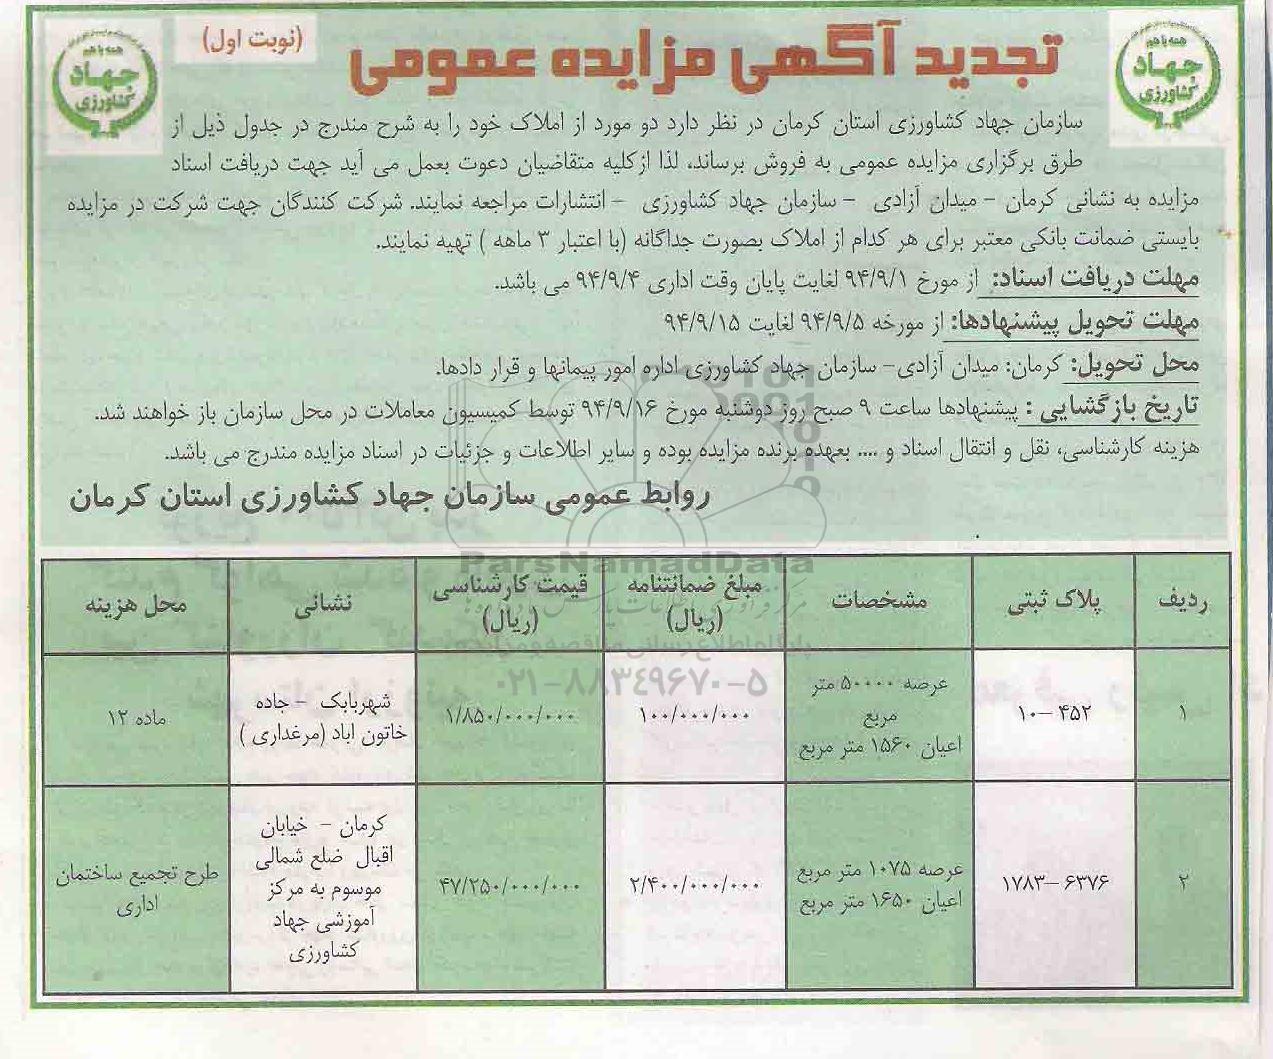 همه با هم
جهاد
کشاورزی
تجدید آگهی مزایده عمومی
(نوبت اول)
همه با هم
جهاد
کشاورزی
سازمان جهاد کشاورزی استان کرمان در نظر دارد دو مورد از املاک خود را به شرح مندرج در جدول ذیل از
طرق برگزاری مزایده عمومی به فروش برساند، لذا ازکلیه متقاضیان دعوت بعمل می آید جهت دریافت اسناد
مزایده به نشانی کرمان - میدان آزادی - سازمان جهاد کشاورزی - انتشارات مراجعه نمایند. شرکت کنندگان جهت شرکت در مزایده
بایستی ضمانت بانکی معتبر برای هر کدام از املاک بصورت جداگانه (با اعتبار ۳ ماهه ) تهیه نمایند.
مهلت دریافت اسناد: از مورخ ۹۴/۹/۱ لغایت پایان وقت اداری ۹۴/۹/۴ می باشد.
مهلت تحویل پیشنهادها: از مورخه ۹۴/۹/۵ لغایت ۹۴/۹/۱۵
محل تحویل: کرمان: میدان آزادی- سازمان جهاد کشاورزی اداره امور پیمانها و قرار دادها.
تاریخ بازگشایی : پیشنهادها ساعت ۹ صبح روز دوشنبه مورخ ۹۴/۹/۱۶ توسط کمیسیون معاملات در محل سازمان باز خواهند شد.
هزینه کارشناسی، نقل و انتقال اسناد و .... بعهده برنده مزایده بوده و سایر اطلاعات و جزئیات در اسناد مزایده مندرج می باشد.
روابط عمومی سازمان جهاد کشاورزی استان کرمان
ParsNamadData
۰۲۱-۸۸۳۴۹۶۷۰-۵
ردیف
پلاک ثبتی
مشخصات
مبلغ ضمانتنامه
(ریال)
قیمت کارشناسی
(ریال)
نشانی
محل هزینه
۱
۴۵۲ -۱۰
عرصه ۵۰۰۰۰ متر
مربع
اعیان ۱۵۶۰ متر مربع
۱۰۰/۰۰۰/۰۰۰
۱/۸۵۰/۰۰۰/۰۰۰
شهربابک - جاده
خاتون اباد (مرغداری )
ماده ۱۲
۲
۶۳۷۶ -۱۷۸۳
عرصه ۱۰۷۵ متر مربع
اعیان ۱۶۵۰ متر مربع
۲/۴۰۰/۰۰۰/۰۰۰
۴۷/۲۵۰/۰۰۰/۰۰۰
کرمان - خیابان
اقبال ضلع شمالی
موسوم به مرکز
آموزشی جهاد
کشاورزی
طرح تجمیع ساختمان
اداری